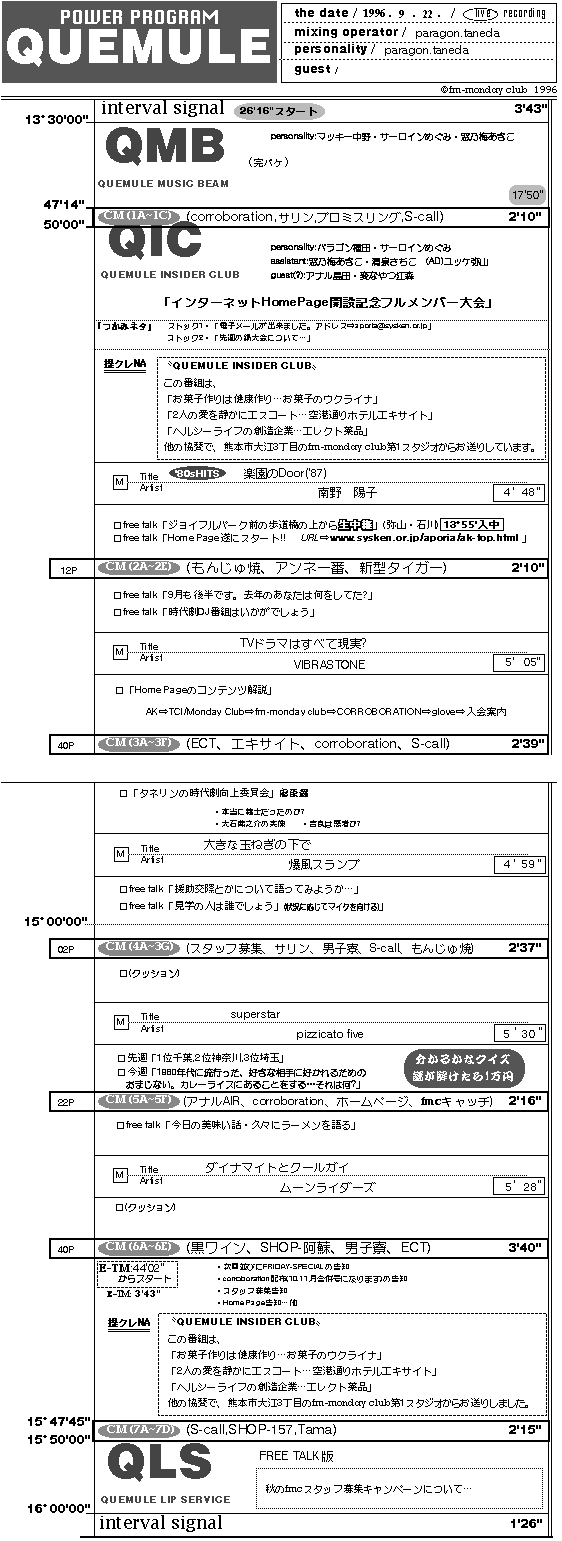 POWER PROGRAM
QUEMULE
the date / 1996. 9. 22. / live recording
mixing operator / paragon.taneda
personality / paragon.taneda
guest /
©fm-monday club 1996
interval signal 26'16"スタート 3'43"
13°30'00"
QMB
personality:マッキー中野・サーロインめぐみ・窓乃梅あきこ
(完パケ)
QUEMULE MUSIC BEAM
17'50"
47'14"
CM (1A~1C) (corroboration,サリン,プロミスリング,S-call) 2'10"
50'00"
QIC
personality:パラゴン種田・サーロインめぐみ
assistant:窓乃梅あきこ・清泉さちこ (AD)ユッケ弥山
QUEMULE INSIDER CLUB
guest(?):アナル畠田・変なやつ江森
「インターネットHomePage開設記念フルメンバー大会」
「つかみネタ」 ストック1・「電子メールが出来ました。アドレス⇨aporia@sysken.or.jp」
ストック2・「先週の鍋大会について…」
提クレNA
〝QUEMULE INSIDER CLUB〟
この番組は、
「お菓子作りは健康作り…お菓子のウクライナ」
「2人の愛を静かにエスコート…空港通りホテルエキサイト」
「ヘルシーライフの創造企業…エレクト薬品」
他の協賛で、熊本市大江3丁目のfm-monday club第1スタジオからお送りしています。
M Title '80sHITS 楽園のDoor('87)
Artist 南野 陽子 4'48"
□free talk「ジョイフルパーク前の歩道橋の上から生中継」(弥山・石川) 13°55'入中
□free talk「Home Page遂にスタート!! URL⇨www.sysken.or.jp/aporia/ak-top.html」
12P CM (2A~2E) (もんじゅ焼、アンネ一番、新型タイガー) 2'10"
□free talk「9月も後半です。去年のあなたは何をしてた?」
□free talk「時代劇DJ番組はいかがでしょう」
M Title TVドラマはすべて現実?
Artist VIBRASTONE 5'05"
□「Home Pageのコンテンツ解説」
AK⇨TCI/Monday Club⇨fm-monday club⇨CORROBORATION⇨glove⇨入会案内
40P CM (3A~3F) (ECT、エキサイト、corroboration、S-call) 2'39"
□「タネリンの時代劇向上委員会」忠臣蔵
・本当に義士だったのか?
・大石内蔵之介の実像 ・吉良は悪者か?
M Title 大きな玉ねぎの下で
Artist 爆風スランプ 4'59"
□free talk「援助交際とかについて語ってみようか…」
□free talk「見学の人は誰でしょう」(状況に応じてマイクを向ける)
15°00'00"
02P CM (4A~3G) (スタッフ募集、サリン、男子寮、S-call、もんじゅ焼) 2'37"
□(クッション)
M Title superstar
Artist pizzicato five 5'30"
□先週「1位千葉,2位神奈川,3位埼玉」
□今週「1980年代に流行った、好きな相手に好かれるための
おまじない。カレーライスにあることをする…それは何?」
分かるかなクイズ
謎が解けたら1万円
22P CM (5A~5F) (アナルAIR、corroboration、ホームページ、fmcキャッチ) 2'16"
□free talk「今日の美味い話・久々にラーメンを語る」
M Title ダイナマイトとクールガイ
Artist ムーンライダーズ 5'28"
□(クッション)
40P CM (6A~6E) (黒ワイン、SHOP-阿蘇、男子寮、ECT) 3'40"
E-TM:44'02"
からスタート
E-TM: 3'43"
・次回並びにFRIDAY-SPECIALの告知
・corroboration配布(10.11月合併号になります)の告知
・スタッフ募集告知
・Home Page告知…他
提クレNA
〝QUEMULE INSIDER CLUB〟
この番組は、
「お菓子作りは健康作り…お菓子のウクライナ」
「2人の愛を静かにエスコート…空港通りホテルエキサイト」
「ヘルシーライフの創造企業…エレクト薬品」
他の協賛で、熊本市大江3丁目のfm-monday club第1スタジオからお送りしました。
15°47'45"
CM (7A~7D) (S-call,SHOP-157,Tama) 2'15"
15°50'00"
QLS
FREE TALK版
QUEMULE LIP SERVICE
秋のfmcスタッフ募集キャンペーンについて…
16°00'00"
interval signal 1'26"